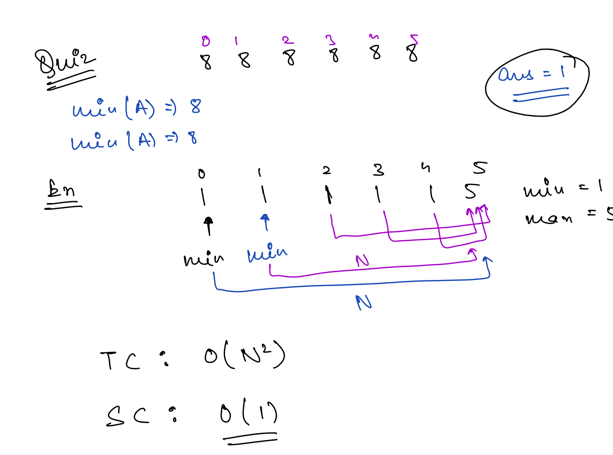 0 1 2 3 4 5
Quiz 8 8 8 8 8 8
ans = 1
min(A) => 8
min(A) => 8
0 1 2 3 4 5
Ex 1 1 1 1 1 5 min = 1
max = 5
min min N
N
TC : O(N²)
SC : O(1)